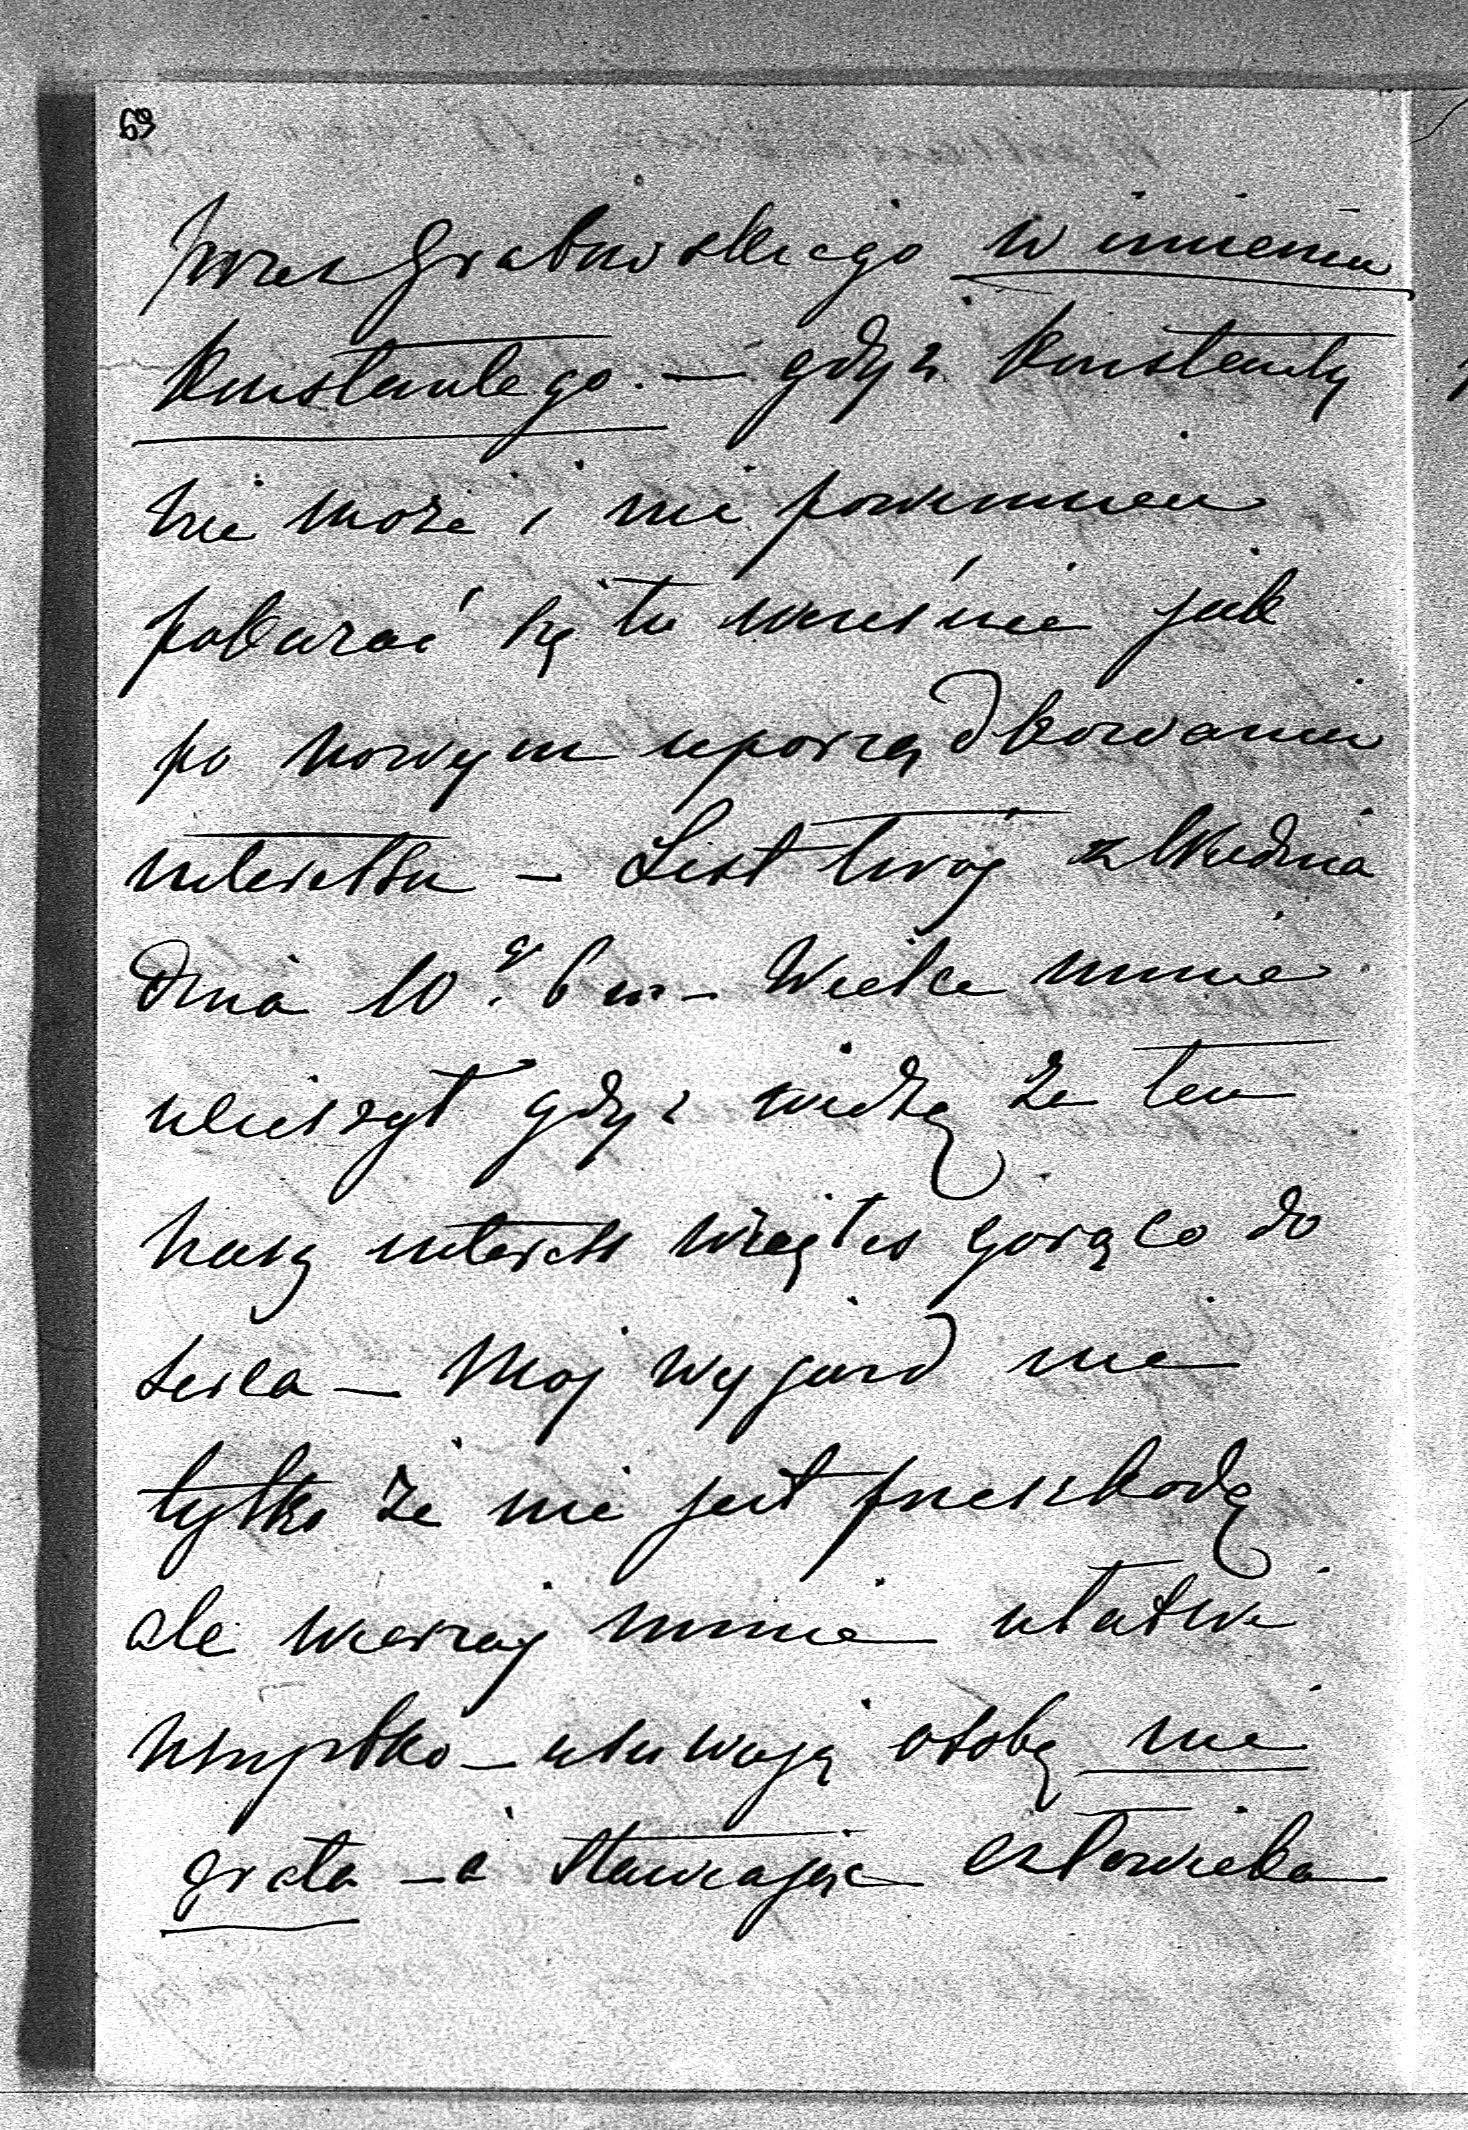 69
przez Grabowskiego w imieniu
Konstantego. — gdyż Konstanty
nie może i nie powinien
pokazać się tu wcześnie jak
po nowym uporządkowaniu
interessu — List twoj z Kwietnia
dnia 10. b m — Wielce mnie
ucieszył gdyż widzę że ten
nasz interess wziąłes gorąco do
serca — Moj wyjazd nie
tylko że nie jest przeszkodą
ale wierzaj mnie ułatwi
wszystko — usuwają osobę nie
grata — a stawiając człowieka